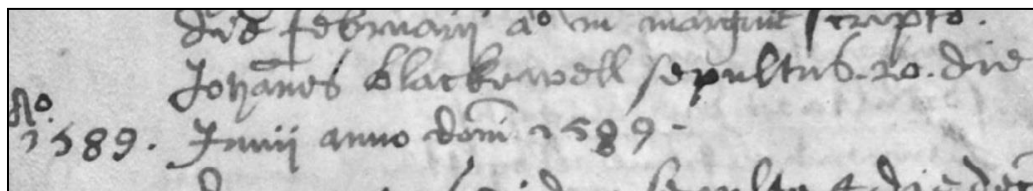 die februarii a° in margine scripto.
Johānes blackewell sepultus. 20. die
A°.
1589. Junii anno domī 1589.